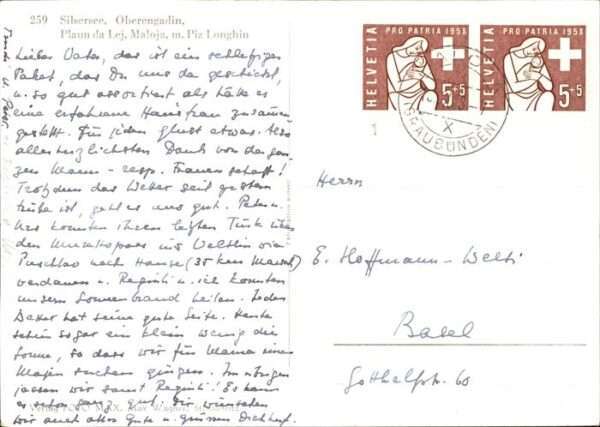 259 Silsersee, Oberengadin,
Plaun da Lej, Maloja, m. Piz Longhin
HELVETIA PRO PATRIA 1958 5+5
HELVETIA PRO PATRIA 1958 5+5
X
(GRAUBÜNDEN)
1
Lieber Vater, das ist ein
Paket, das Du uns da geschickt,
u. so gut assortiert als hätte es
eine erfahrene Hausfrau zusammen
gestellt. Für jeden etwas. Also
allerherzlichsten Dank von der gan-
zen Mann- resp. Frauenschaft!
Trotzdem das Wetter seit gestern
trübe ist, geht es uns gut. Peter u.
konnten ihren letzten Türk über
den Murettopass ins Veltlin via
Puschlav nach Hause (35 km Marsch)
verdauen u. Regiuti u. ich konnten
unsern Sonnenbrand heilen. Jedes
Wetter hat seine gute Seite. Heute
schien sogar ein klein wenig die
Sonne, so dass wir für Mama einen
suchen gingen. Im übrigen
jassen wir samt Regiuti! Es kann
es schon ganz gut. Wir wünschen
Dir auch alles Gute u. grüssen Dich herzl.
Herrn
E. Hoffmann-Welti
Basel
Gotthelfstr. 60